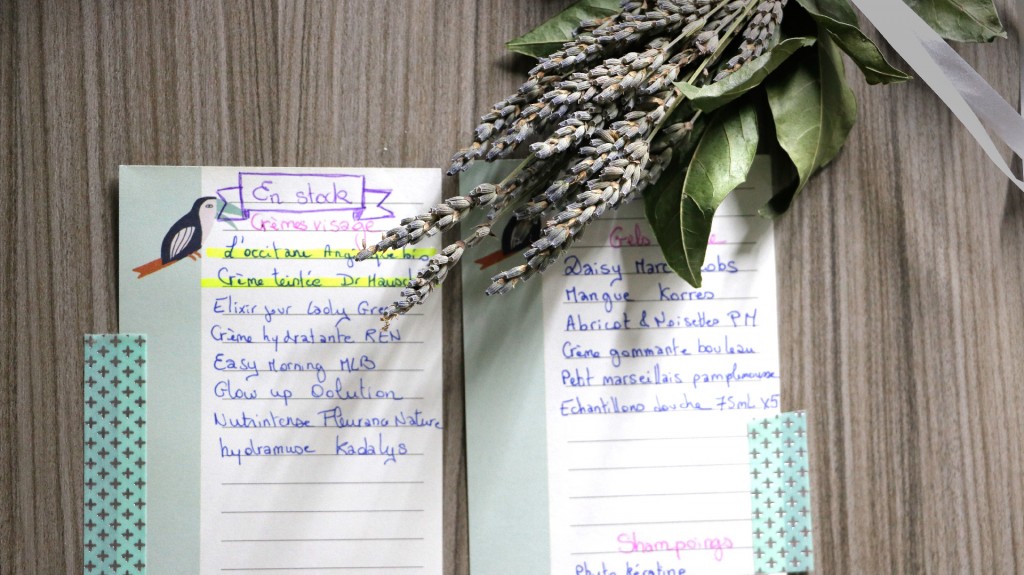 En stock
Crèmes visage
L'occitane Angélique bio
Crème teintée Dr Hausch
Elixir jour Lady Green
Crème hydratante REN
Easy Morning MLB
Glow up Oolution
Nutrintense Fleurance Nature
hydramuse Kadalys
Gels
Daisy Marc Jacobs
Mangue Korres
Abricot & Noisettes PM
Crème gommante bouleau
Petit marseillais pamplemousse
Echantillons douche 75mL x5
Shampoings
Phyto kératine